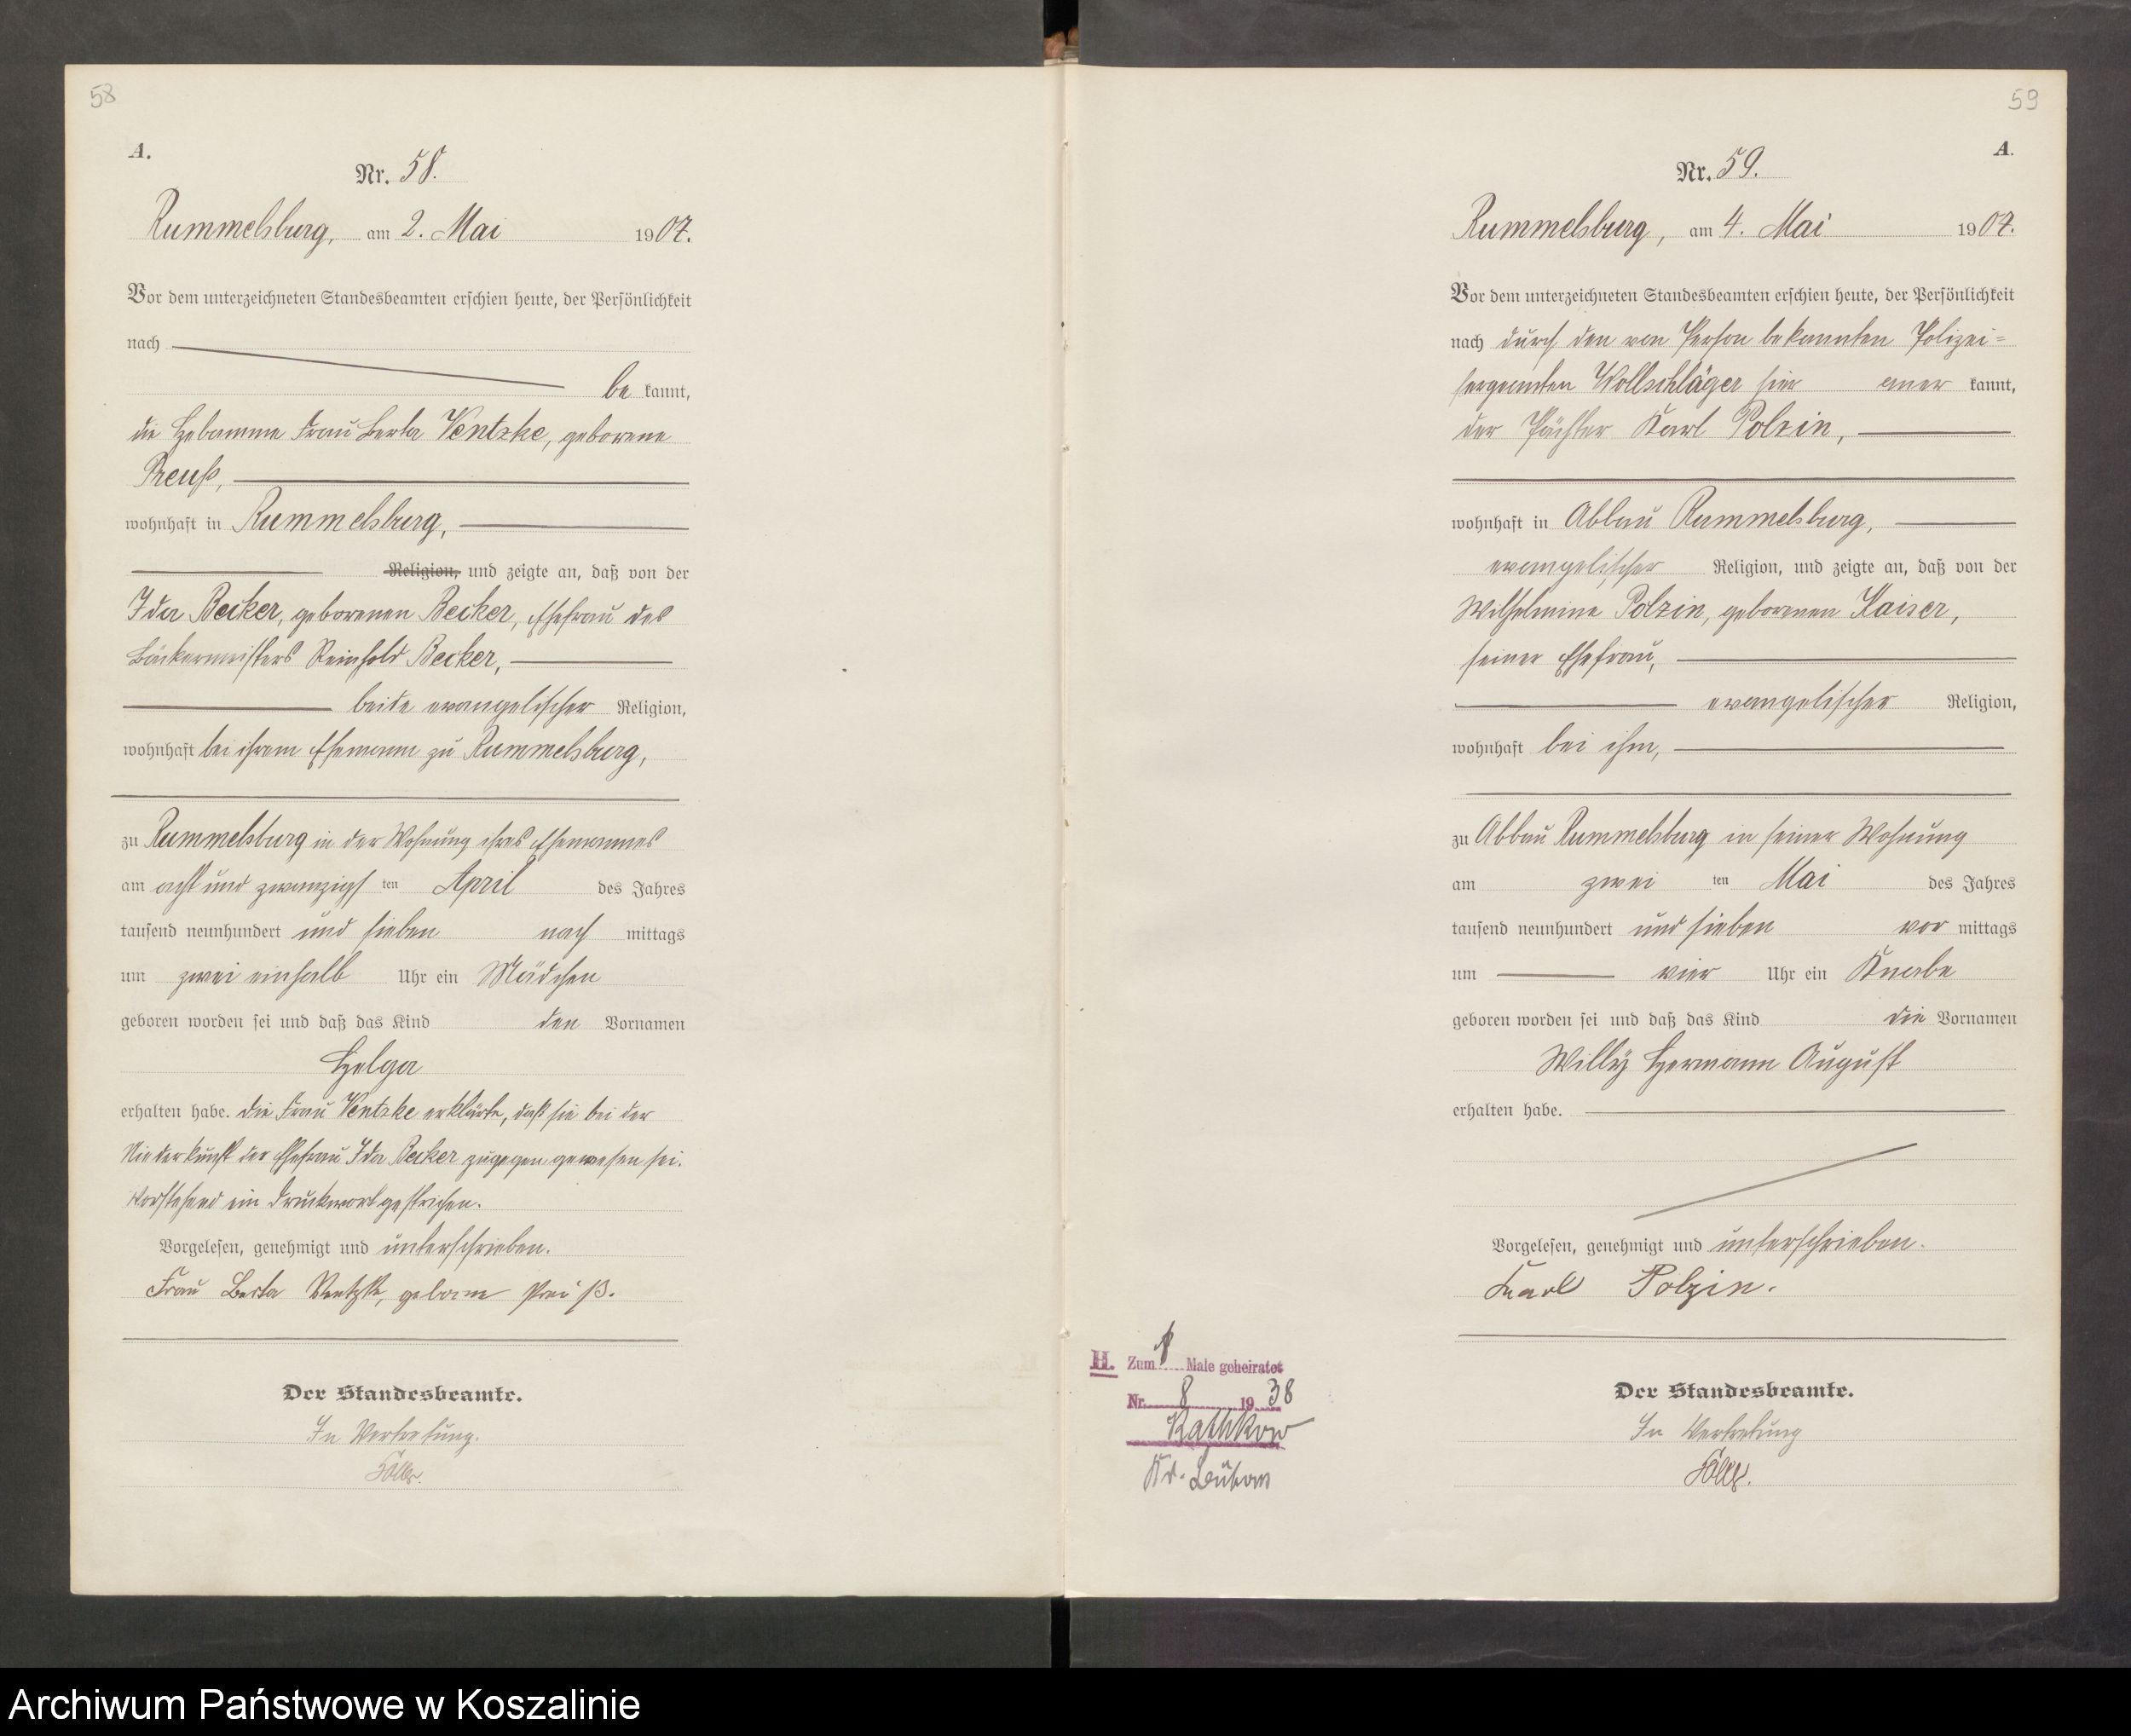 58
A.
Nr. 58.
Rummelsburg, am 2. Mai 1907.
Vor dem unterzeichneten Standesbeamten erschien heute, der Persönlichkeit
nach
be kannt,
die Hebamme Frau Berta Ventzke, geborene
Preuß,
wohnhaft in Rummelsburg,
Religion, und zeigte an, daß von der
Ida Becker, geborenen Becker, Ehefrau des
Bäckermeisters Reinhold Becker,
beide evangelischer Religion,
wohnhaft bei ihrem Ehemann zu Rummelsburg,
zu Rummelsburg in der Wohnung ihres Ehemannes
am acht und zwanzigs ten April des Jahres
tausend neunhundert und sieben nach mittags
um zwei einhalb Uhr ein Mädchen
geboren worden sei und daß das Kind den Vornamen
Helga
erhalten habe. Die Frau Ventzke erklärte, daß sie bei der
Niederkunft der Ehefrau Ida Becker zugegen gewesen sei.
Vorstehend ein Druckwort gestrichen.
Vorgelesen, genehmigt und unterschrieben.
Frau Berta Ventzke, geborne Preuß.
Der Standesbeamte.
In Vertretung.
59
A.
Nr. 59.
Rummelsburg, am 4. Mai 1907.
Vor dem unterzeichneten Standesbeamten erschien heute, der Persönlichkeit
nach durch den von Person bekannten Polizei=
sergeanten Wollschläger hier aner kannt,
der Pächter Karl Polzin,
wohnhaft in Abbau Rummelsburg,
evangelischer Religion, und zeigte an, daß von der
Wilhelmine Polzin, geborenen Kaiser,
seiner Ehefrau,
evangelischer Religion,
wohnhaft bei ihm,
zu Abbau Rummelsburg in seiner Wohnung
am zwei ten Mai des Jahres
tausend neunhundert und sieben vor mittags
um vier Uhr ein Knabe
geboren worden sei und daß das Kind die Vornamen
Willy Hermann August
erhalten habe.
Vorgelesen, genehmigt und unterschrieben.
Karl Polzin.
Der Standesbeamte.
In Vertretung
H. Zum 1 Male geheiratet
Nr. 8 1938
Rathkow
Kr.
Archiwum Państwowe w Koszalinie